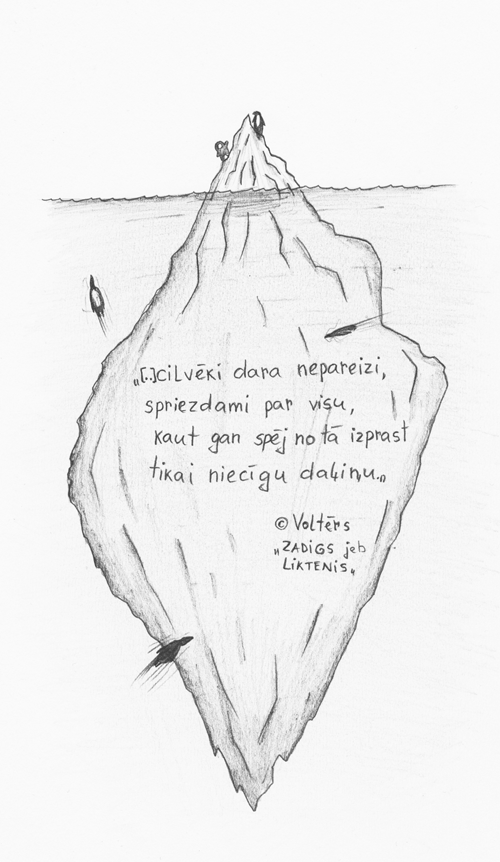 „[..]cilvēki dara nepareizi,
spriezdami par visu,
kaut gan spēj no tā izprast
tikai niecīgu daļiņu.„
© Voltērs
„ZADIGS jeb
LIKTENIS„